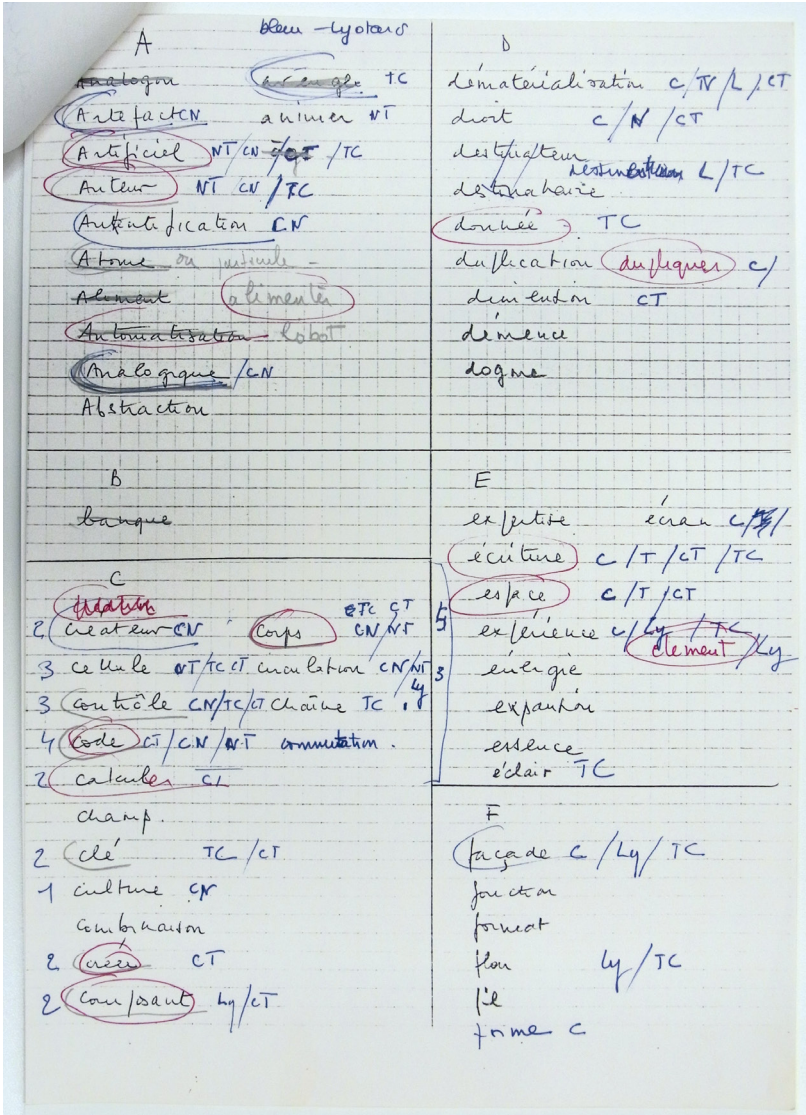 bleu - Lyotard
A
Analogon aveugle TC
Artefact CN animer NT
Artificiel NT/CN /TC
Auteur NT CN/TC
Autentification CN
Atome ou particule -
Aliment alimenter
Automatisation Robot
Analogique /CN
Abstraction
B
banque
C
création
2 Créateur CN Corps TC CT CN/NT
3 cellule NT/TC CT circulation CN/NT/Ly
3 contrôle CN/TC/CT chaîne TC
4 code CT/CN/NT commutation.
2 calculer CT
champ.
2 clé TC/CT
1 culture CN
Combinaison
2 créer CT
2 Composant Ly/CT
D
dématérialisation C/N/L/CT
droit C/N/CT
destinateur
destination L/TC
destinataire
donnée TC
duplication dupliquer C/
dimension CT
démence
dogme
E
expertise écran C/
écriture C/T/CT/TC
espace C/T/CT
5
expérience C/Ly/TC
élément/Ly
3
énergie
expansion
essence
éclair TC
F
façade C/Ly/TC
fonction
format
flou Ly/TC
fil
frime C